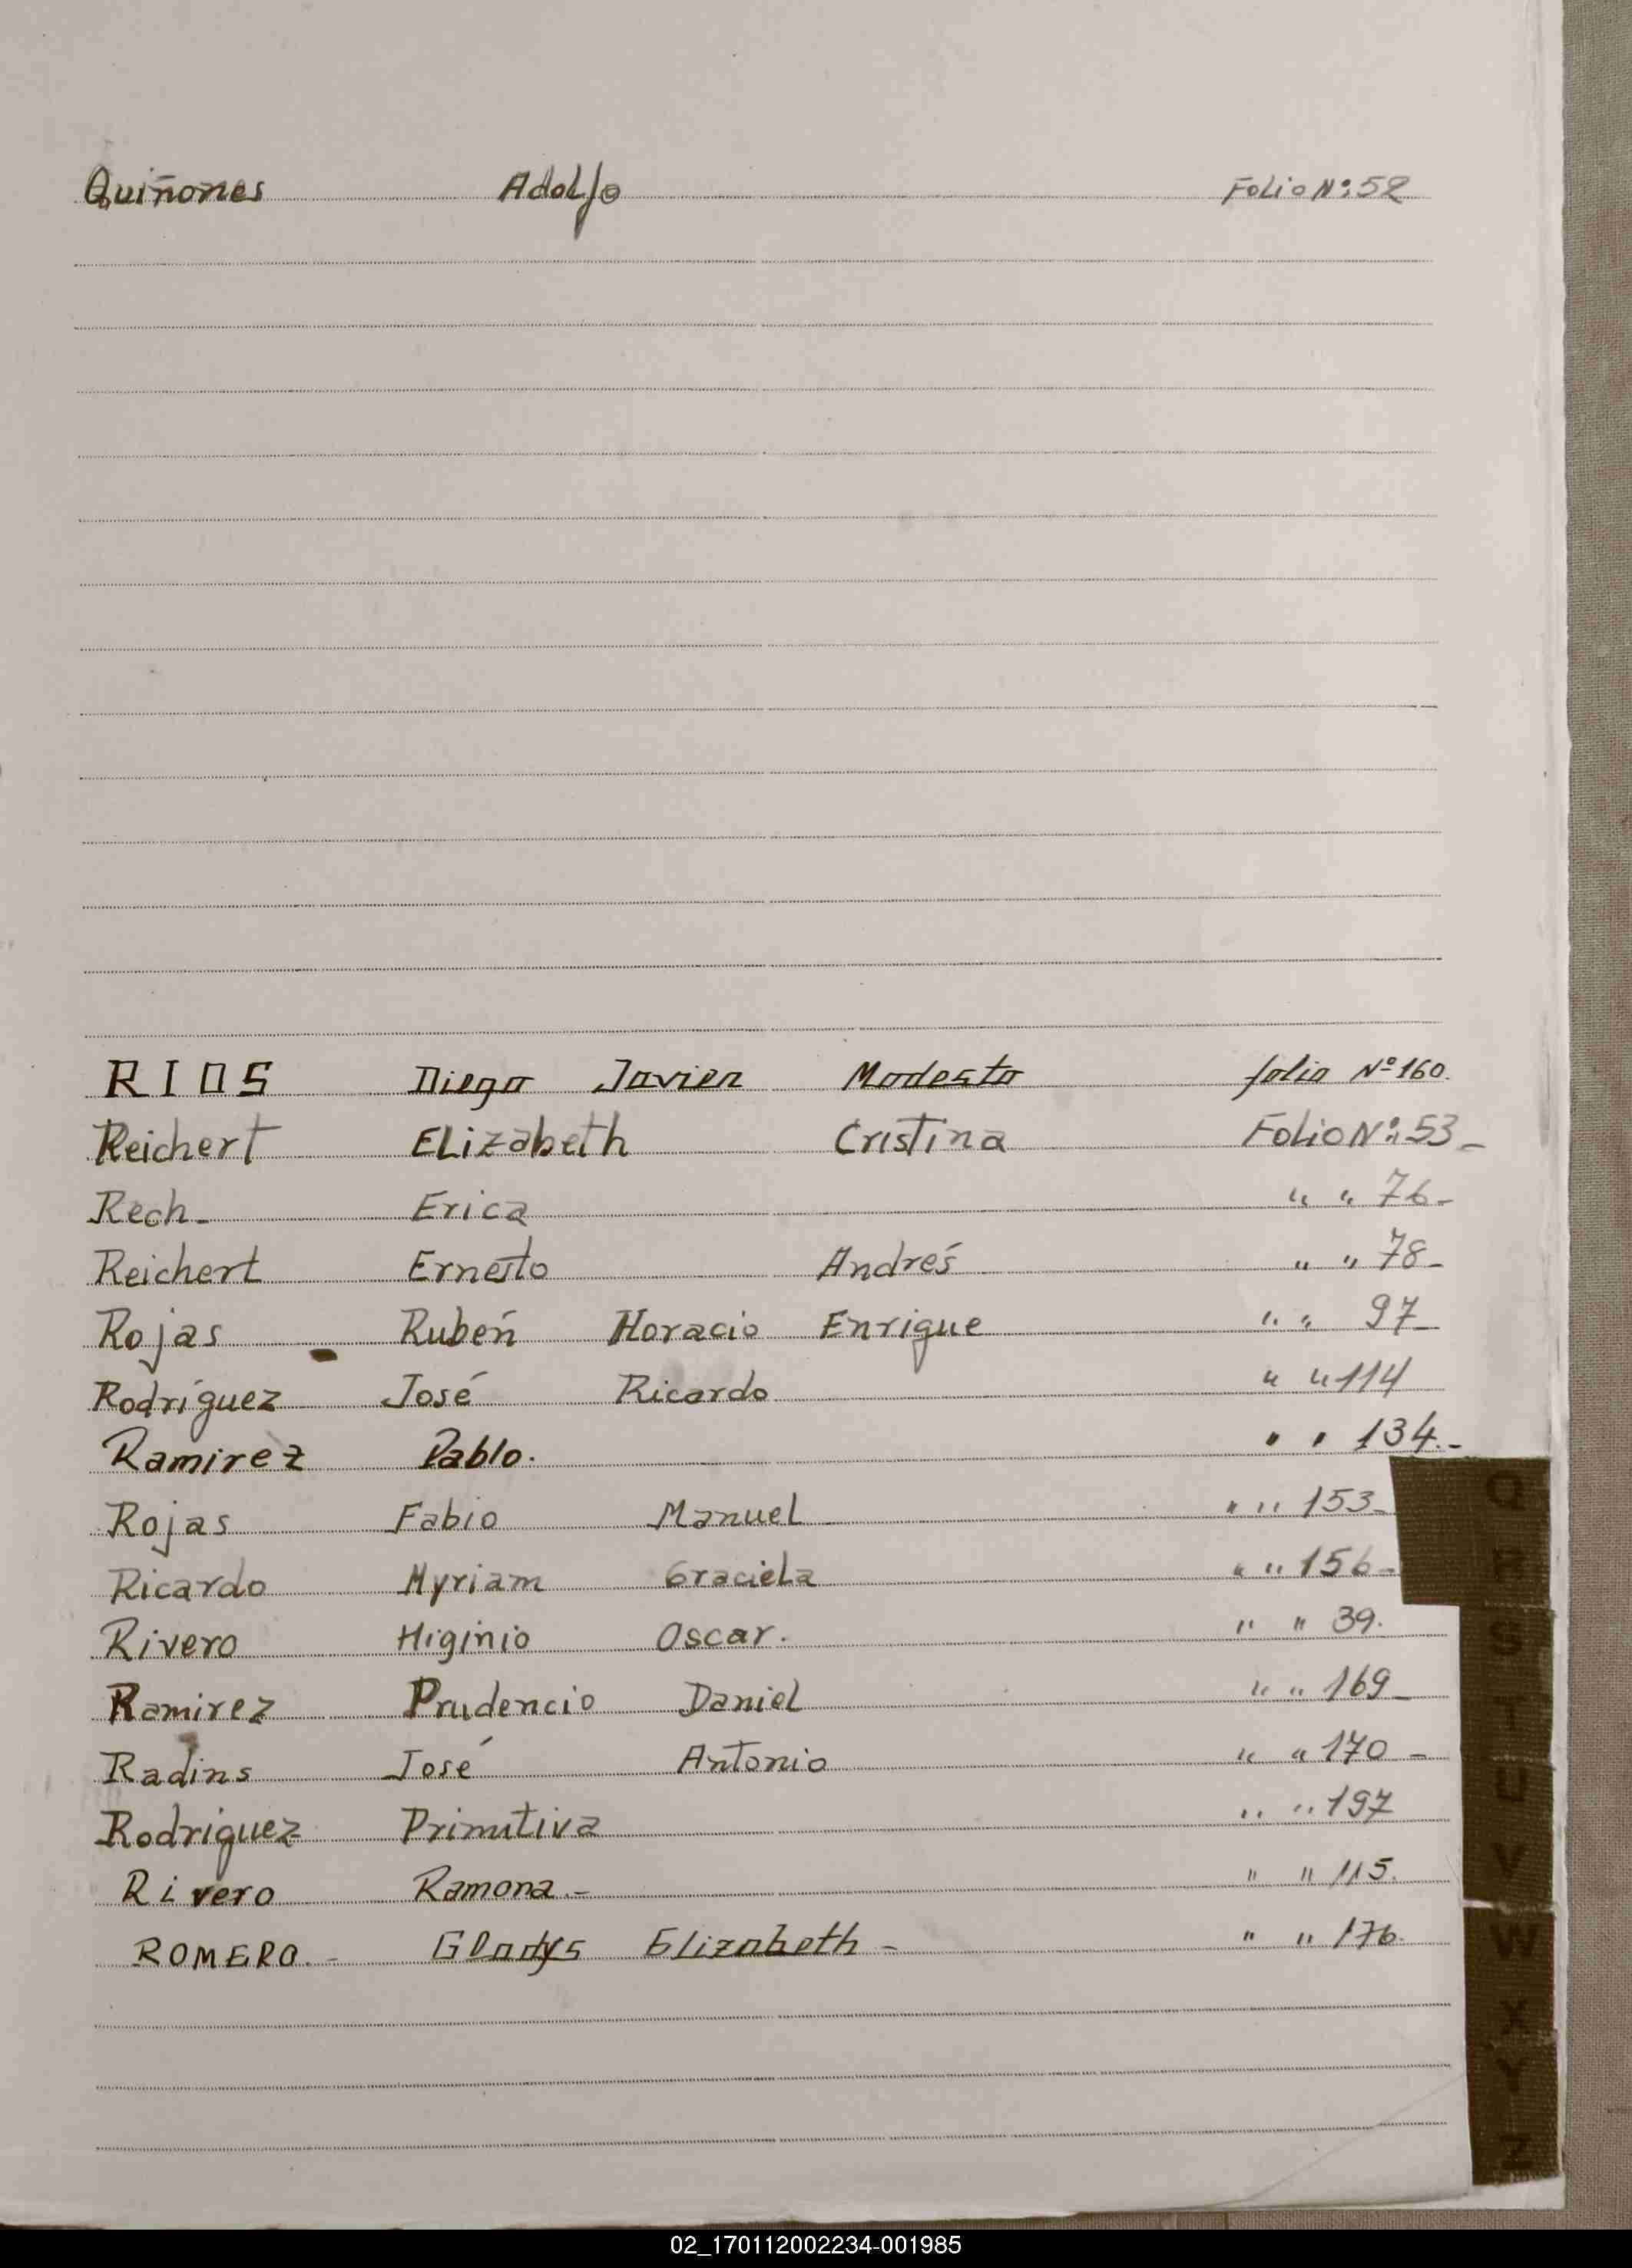 Quiñones Adolfo Folio Nº:52
RIOS Diego Javier Modesto folio Nº160.
Reichert ELizabeth Cristina Folio Nº:53-
Rech- Erica " " 76-
Reichert Ernesto Andrés " " 78-
Rojas Rubén Horacio Enrique " " 97-
Rodríguez José Ricardo " " 114
Ramirez Pablo. " " 134.-
Rojas Fabio Manuel " " 153-
Ricardo Myriam GracieLa " " 156-
Rivero Higinio Oscar. " " 39.
Ramirez Prudencio Daniel " " 169-
Radins José Antonio " " 170-
Rodriguez Primitiva " " 197
Rivero Ramona.- " " 115.
ROMERO.- Gladys Elizabeth- " " 176.
Q
R
S
T
U
V
W
X
Y
Z
02_170112002234-001985